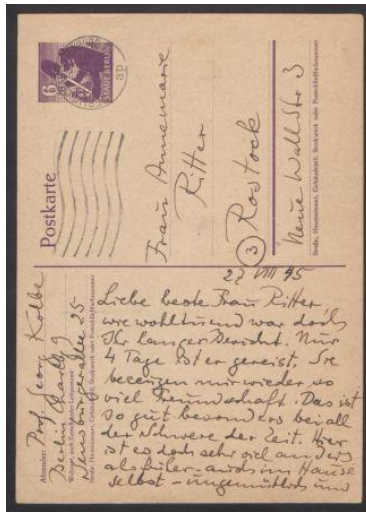 6
STADT BERLIN
Postkarte
Frau Annemarie
Ritter
(3) Rostock
Neue Wallstr 3
Straße, Hausnummer, Gebäudeteil, Stockwerk oder Postschließfachnummer
Absender: Prof. Georg Kolbe
Berlin Charlb 9
Wohnort, auch Zustell- oder Leitpostamt
Sensburgerallee 25
Straße, Hausnummer, Gebäudeteil, Stockwerk oder Postschließfachnummer
27 VIII 45
Liebe beste Frau Ritter
wie wohltuend war doch
Ihr langer Bericht. Nur
4 Tage ist er gereist. Sie
bezeugen mir wieder so
viel Freundschaft. Das ist
so gut besonders bei all
der Schwere der Zeit. Hier
ist es doch sehr viel anders
als früher – auch im Hause
selbst – ungemütlich und